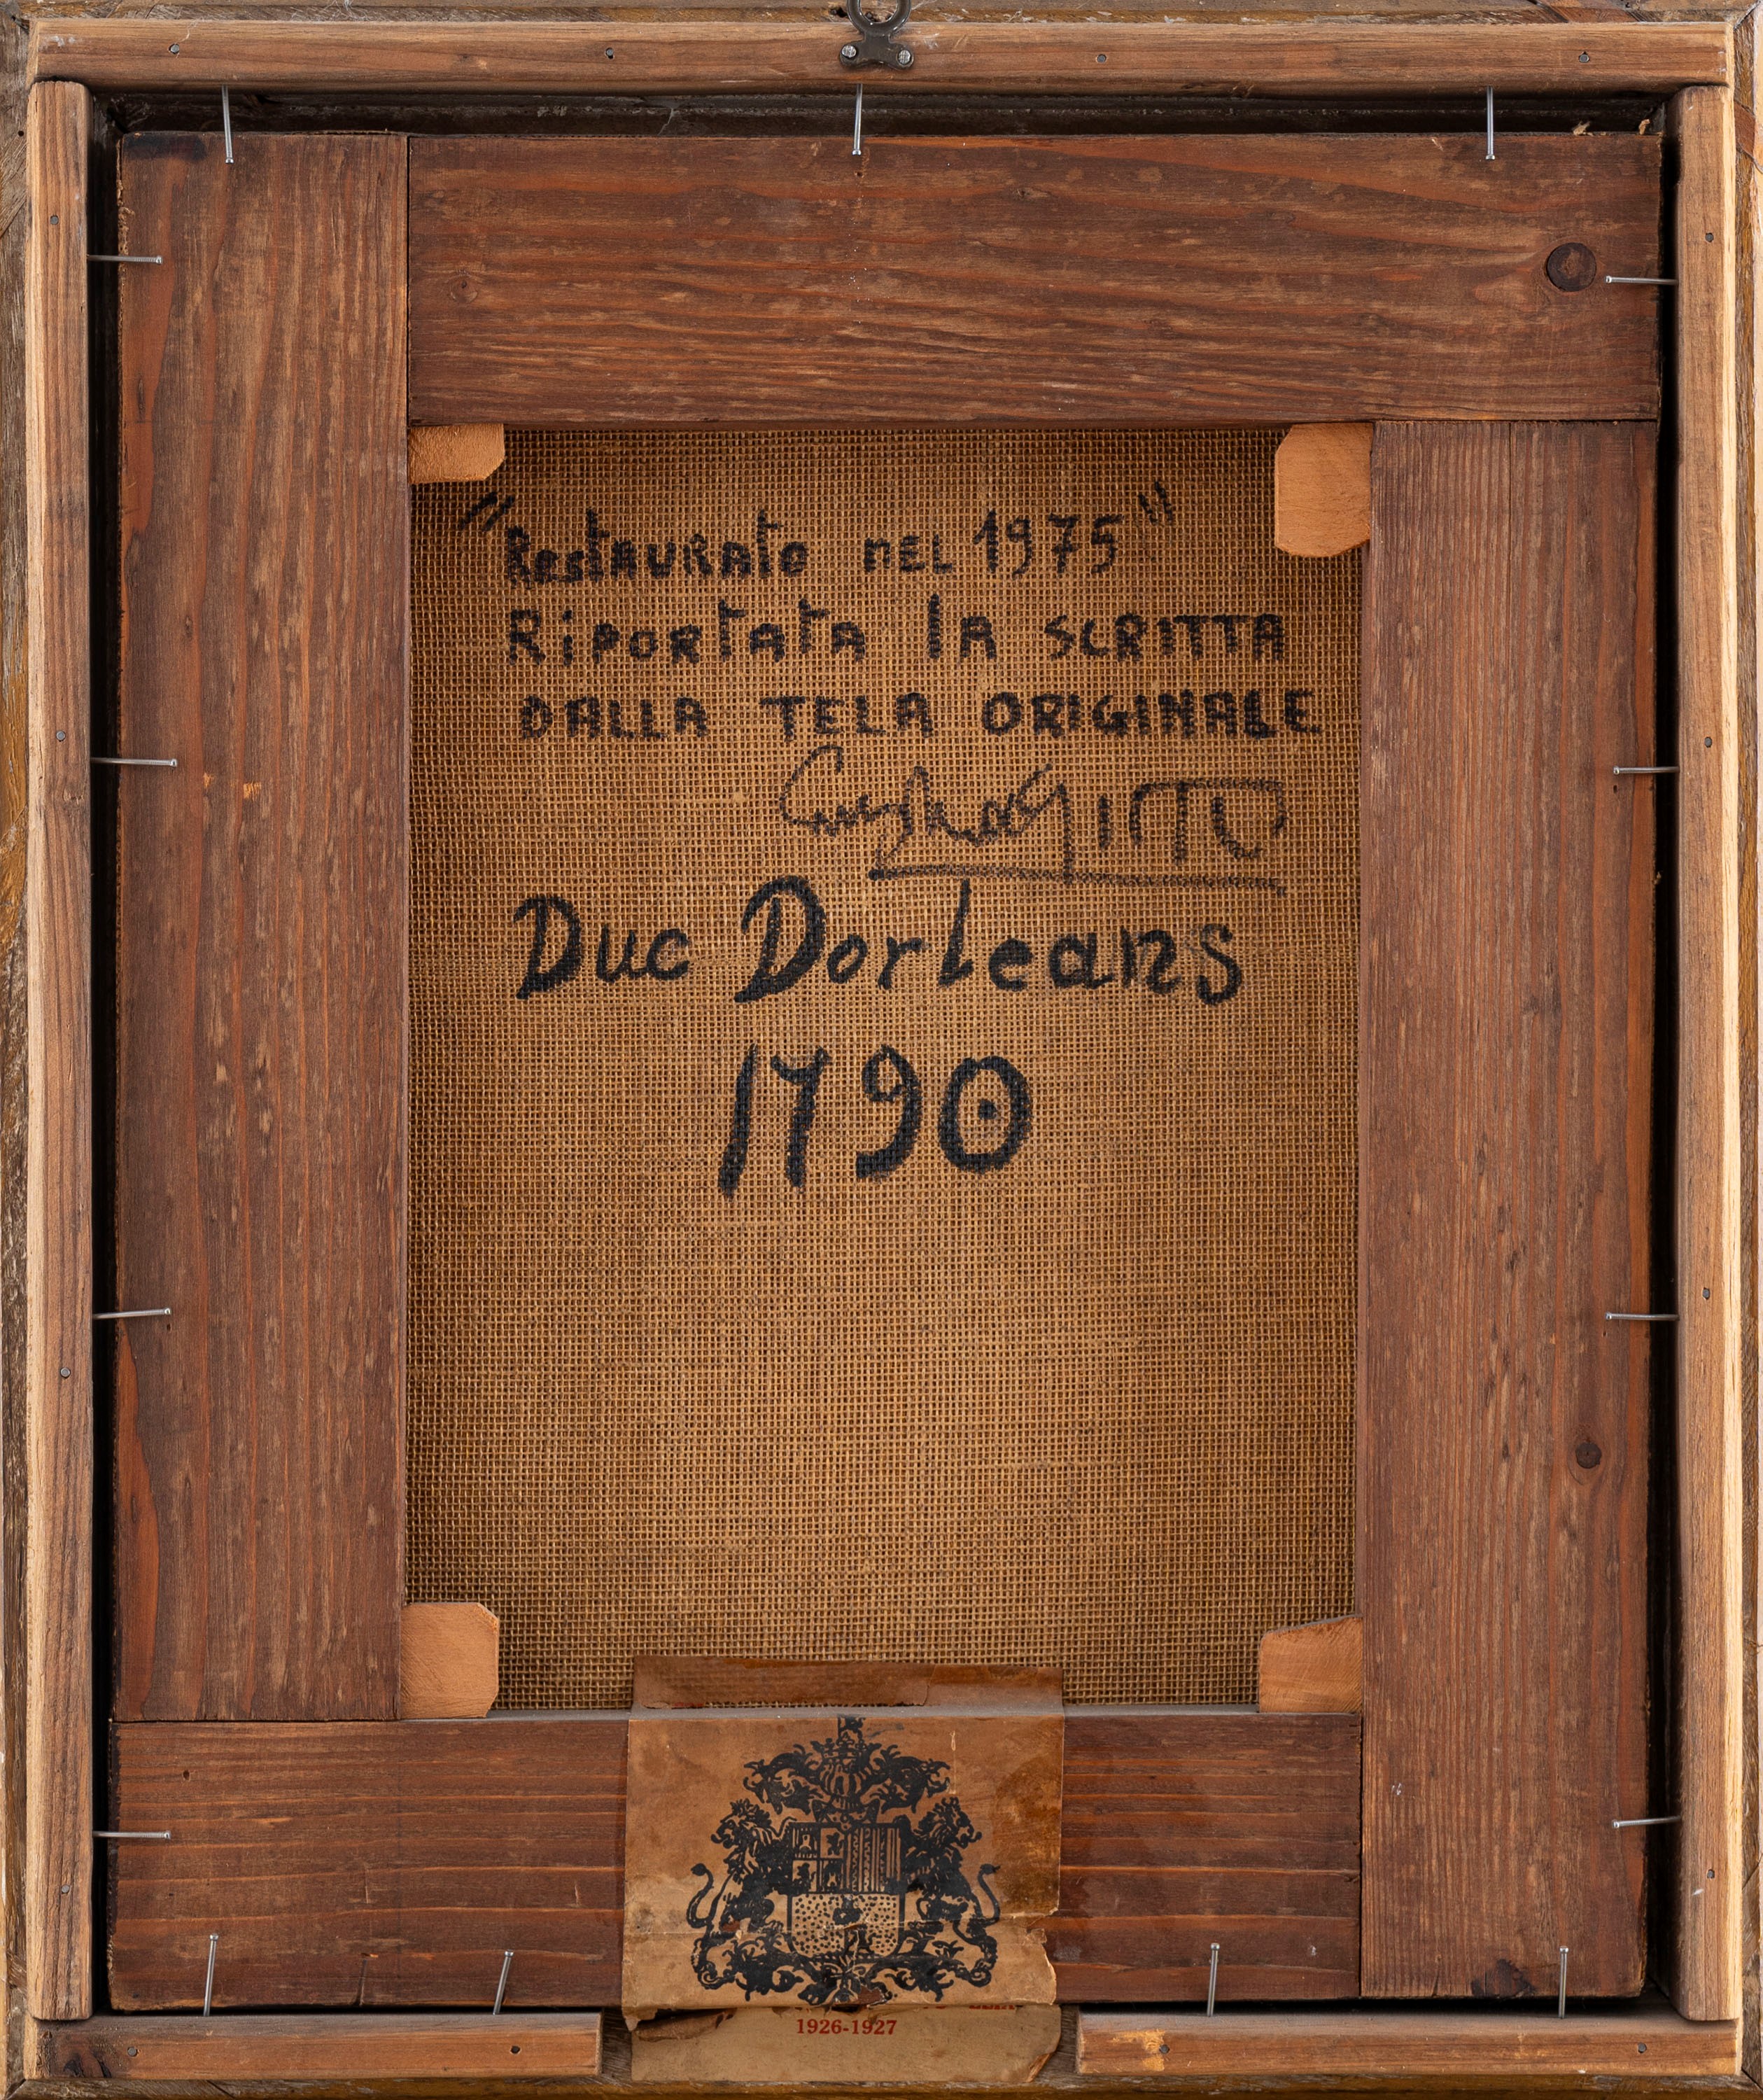 "Restaurato nel 1975"
Riportata la scritta
dalla tela originale
Duc Dorleans
1790
1926-1927